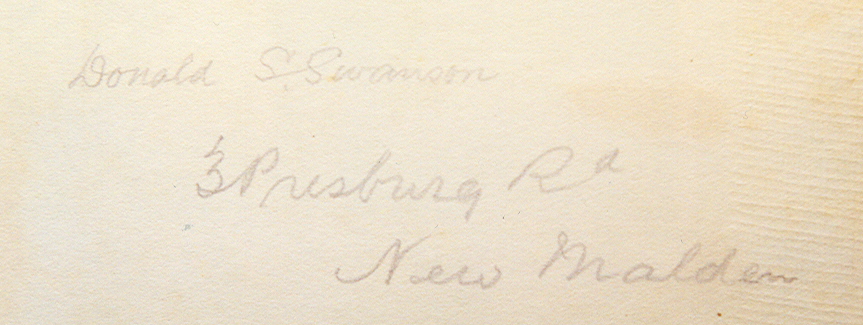 Donald S. Swanson
3 Presburg Rd
New Malden